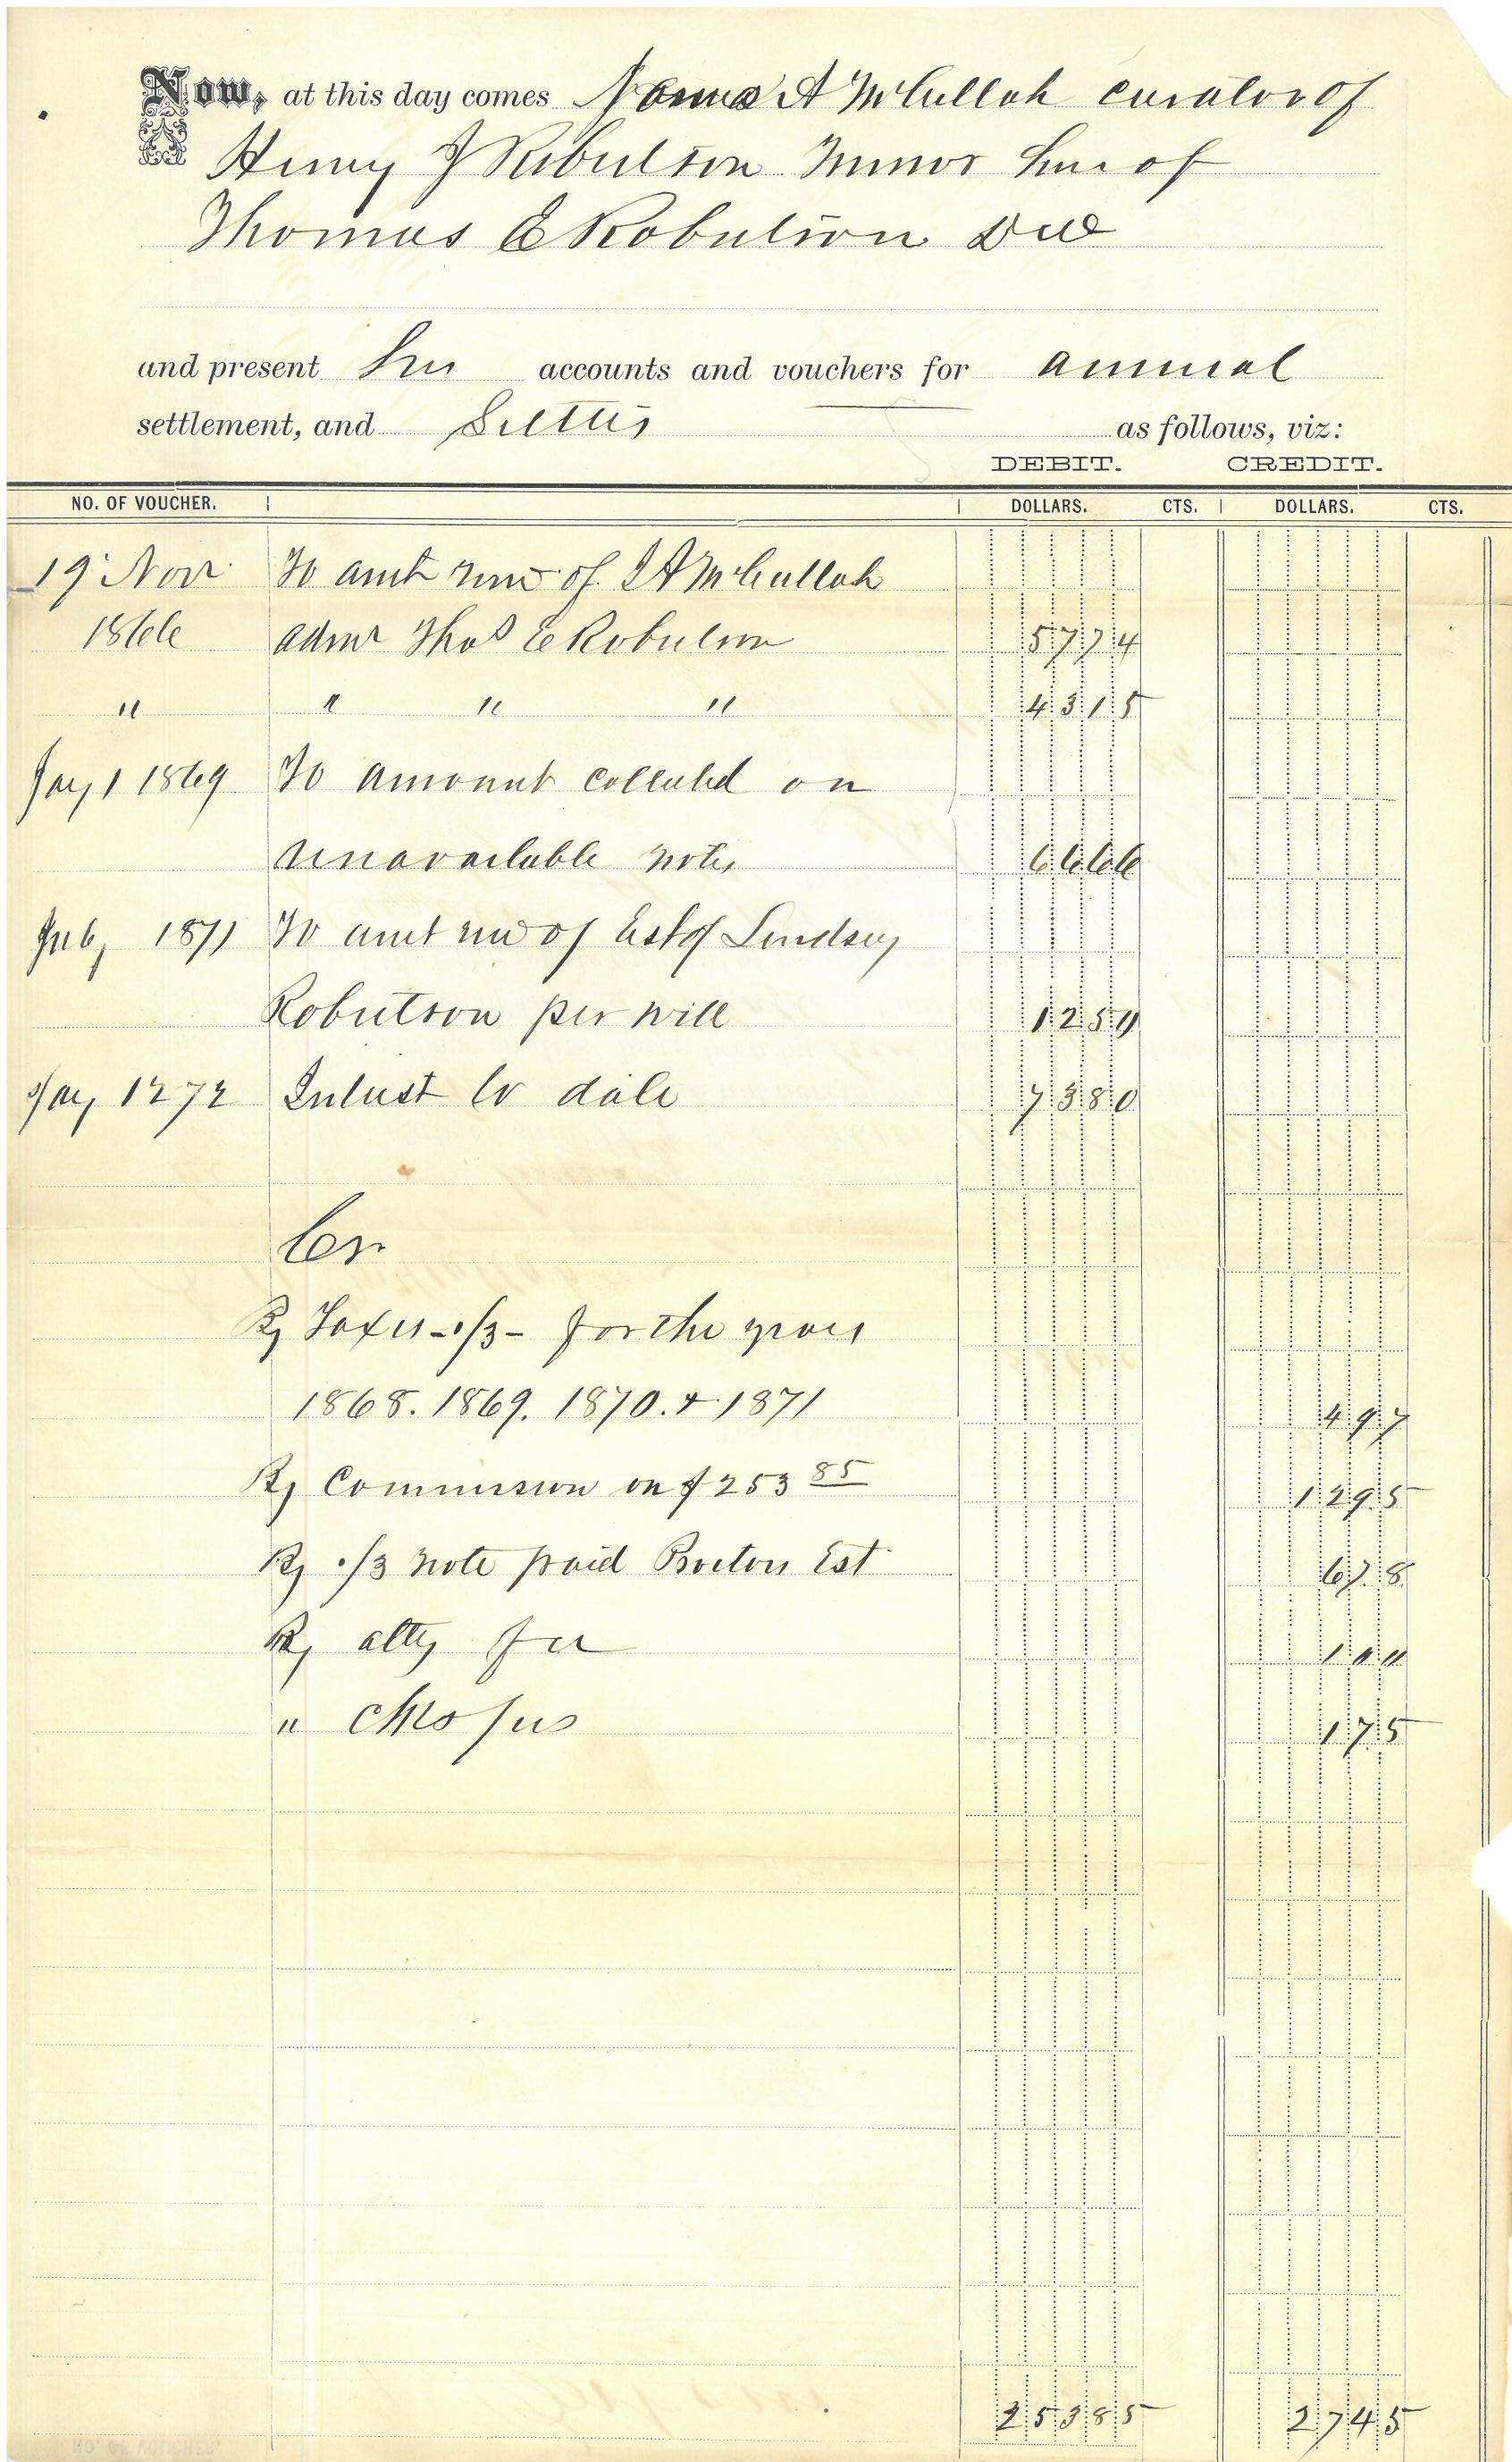 Now, at this day comes A McCullah curator of
Henry J Robertson Minor heir of
Thomas E Robertson Decd
and present his accounts and vouchers for annual
settlement, and Settles as follows, viz:
DEBIT. CREDIT.
NO. OF VOUCHER. DOLLARS. CTS. DOLLARS. CTS.
19 Nov To amt recd of J A McCullah
1866 admr Thos E Robertson 5774
" " " " 4315
Jay 1 1869 To amount collected on
unavailable notes 6666
1871 To amt recd of Est of Lindsey
Robertson per will 1250
Jay 1872 Interest to date 7380
Cr
By Taxes - 1/3 - for the years
1868. 1869. 1870. & 1871 497
By Commission on $253 85 1295
By 1/3 note paid Est 678
By atty fee 100
" Clks fees 175
25385 2745
NO. OF VOUCHER.